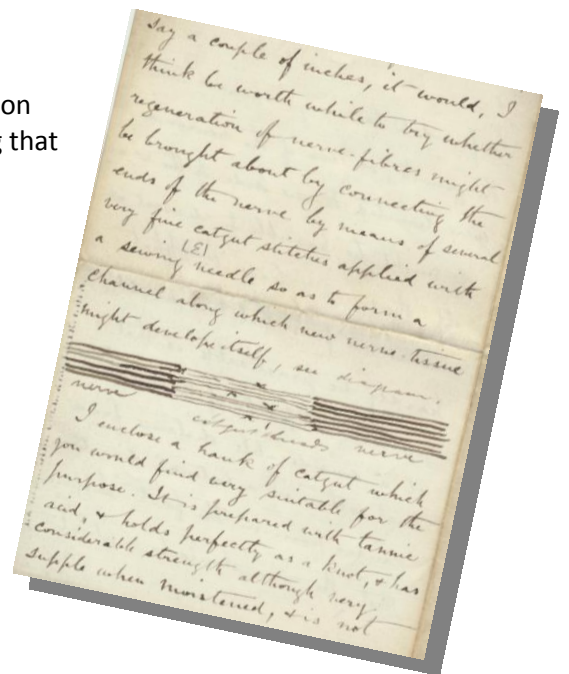 on
g that
say a couple of inches, it would, I
think be worth while to try whether
regeneration of nerve-fibres might
be brought about by connecting the
ends of the nerve by means of several
very fine catgut stitches applied with
a sewing needle so as to form a
channel along which new nerve-tissue
might develope itself, see diagram.
nerve catgut threads nerve
I enclose a hank of catgut which
you would find very suitable for the
purpose. It is prepared with tannic
acid, & holds perfectly as a knot, & has
considerable strength although very
supple when moistened, & is not